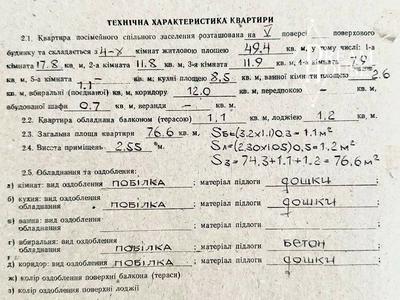 ТЕХНІЧНА ХАРАКТЕРИСТИКА КВАРТИРИ
2.1. Квартира посімейного спільного заселення розташована на V поверсі поверхового
будинку та складається з 4-х кімнат житловою площею 49.4 кв. м, у тому числі: 1-а
кімната 17.8 кв. м, 2-а кімната 11.8 кв. м, 3-я кімната 11.9 кв. м, 4-а кімната 7.9
кв. м, 5-а кімната — кв. м; кухні площею 8,5 кв. м, ванної кімнати площею 2.6
кв. м, вбиральні (поєднаної) 1.1 кв. м, коридору 12.0 кв. м, передпокою — кв. м,
вбудованої шафи 0.7 кв. м, веранди — кв. м.
2.2. Квартира обладнана балконом (терасою) 1.1 кв. м, лоджією 1.2 кв. м.
2.3. Загальна площа квартири 76.6 кв. м. Sб=(3.2х1.1)0.3=1.1м²
2.4. Висота приміщень 2.55 м. Sл=(2.30х1.05)0,5=1.2м²
Sз=74,3+1.1+1.2=76,6м²
2.5. Обладнання та оздоблення:
а) кімнат: вид оздоблення ПОБІЛКА; матеріал підлоги дошки;
б) кухня: вид оздоблення обладнання ПОБІЛКА; матеріал підлоги дошки;
в) ванна: вид оздоблення обладнання ; матеріал підлоги ;
г) вбиральня: вид оздоблення обладнання ПОБІЛКА; матеріал підлоги бетон;
д) коридор: вид оздоблення ПОБІЛКА; матеріал підлоги дошки;
ж) колір оздоблення поверхні балкона (тераси)
з) колір оздоблення поверхні лоджії